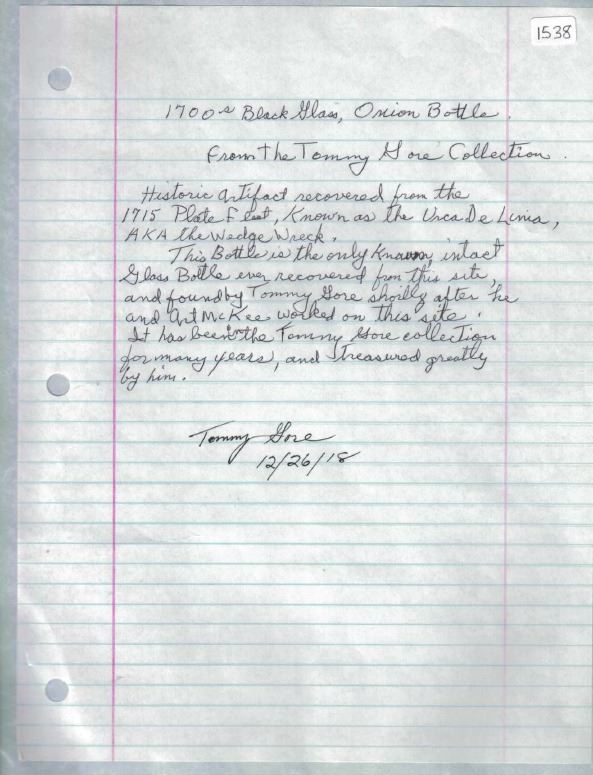 1538
1700s Black Glass, Onion Bottle.
From The Tommy Gore Collection.
Historic artifact recovered from the
1715 Plate Fleet, Known as the Urca De Linia,
AKA the Wedge Wreck.
This Bottle is the only Known intact
Glass Bottle ever recovered from this site,
and found by Tommy Gore shortly after he
and Art McKee worked on this site.
It has been in the Tommy Gore collection
for many years, and treasured greatly
by him.
Tommy Gore
12/26/18